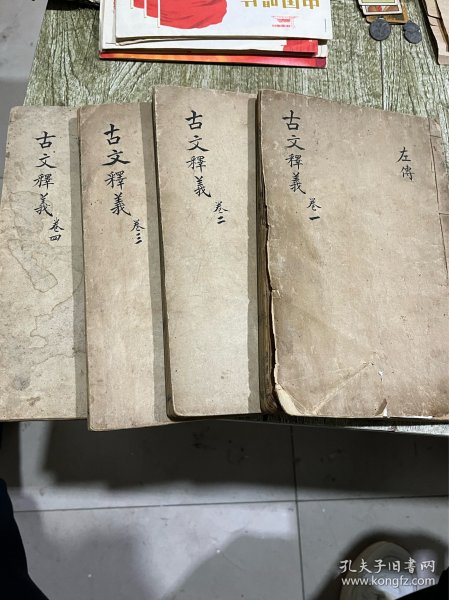 中国品牌
古文釋義 卷四
古文釋義 卷三
古文釋義 卷二
古文釋義 卷一
左傳
孔夫子旧书网
www.kongfz.com